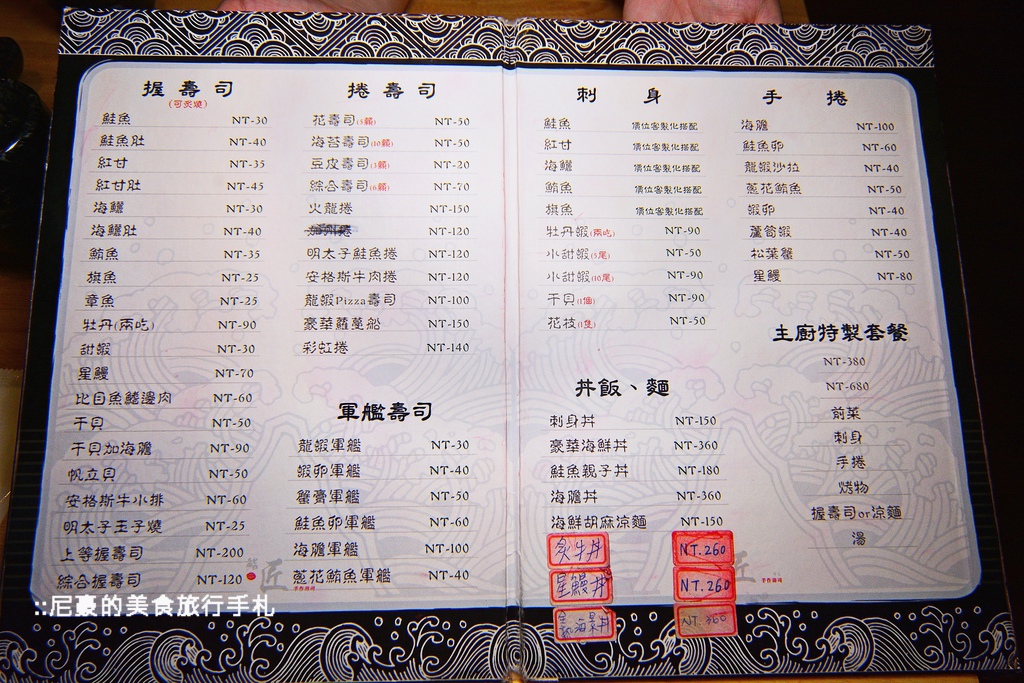 握壽司
(可炙燒)
鮭魚 NT-30
鮭魚肚 NT-40
紅甘 NT-35
紅甘肚 NT-45
海鱺 NT-30
海鱺肚 NT-40
鮪魚 NT-35
旗魚 NT-25
章魚 NT-25
牡丹(兩吃) NT-90
甜蝦 NT-30
星鰻 NT-70
比目魚鰭邊肉 NT-60
干貝 NT-50
干貝加海膽 NT-90
帆立貝 NT-50
安格斯牛小排 NT-60
明太子玉子燒 NT-25
上等握壽司 NT-200
綜合握壽司 NT-120
捲壽司
花壽司(5顆) NT-50
海苔壽司(10顆) NT-50
豆皮壽司(3顆) NT-20
綜合壽司(6顆) NT-70
火龍捲 NT-150
NT-120
明太子鮭魚捲 NT-120
安格斯牛肉捲 NT-120
龍蝦Pizza壽司 NT-100
豪華蘿蔓船 NT-150
彩虹捲 NT-140
軍艦壽司
龍蝦軍艦 NT-30
蝦卵軍艦 NT-40
蟹膏軍艦 NT-50
鮭魚卵軍艦 NT-60
海膽軍艦 NT-100
蔥花鮪魚軍艦 NT-40
刺身
鮭魚 價位客製化搭配
紅甘 價位客製化搭配
海鱺 價位客製化搭配
鮪魚 價位客製化搭配
旗魚 價位客製化搭配
牡丹蝦(兩吃) NT-90
小甜蝦(5尾) NT-50
小甜蝦(10尾) NT-90
干貝(1個) NT-90
花枝(1隻) NT-50
丼飯、麵
刺身丼 NT-150
豪華海鮮丼 NT-360
鮭魚親子丼 NT-180
海膽丼 NT-360
海鮮胡麻涼麵 NT-150
炙牛丼 NT.260
星鰻丼 NT.260
NT.360
手捲
海膽 NT-100
鮭魚卵 NT-60
龍蝦沙拉 NT-40
蔥花鮪魚 NT-50
蝦卵 NT-40
蘆筍蝦 NT-40
松葉蟹 NT-50
星鰻 NT-80
主廚特製套餐
NT-380
NT-680
前菜
刺身
手捲
烤物
握壽司or涼麵
湯
匠
手作壽司
匠
手作壽司
::尼豪的美食旅行手札